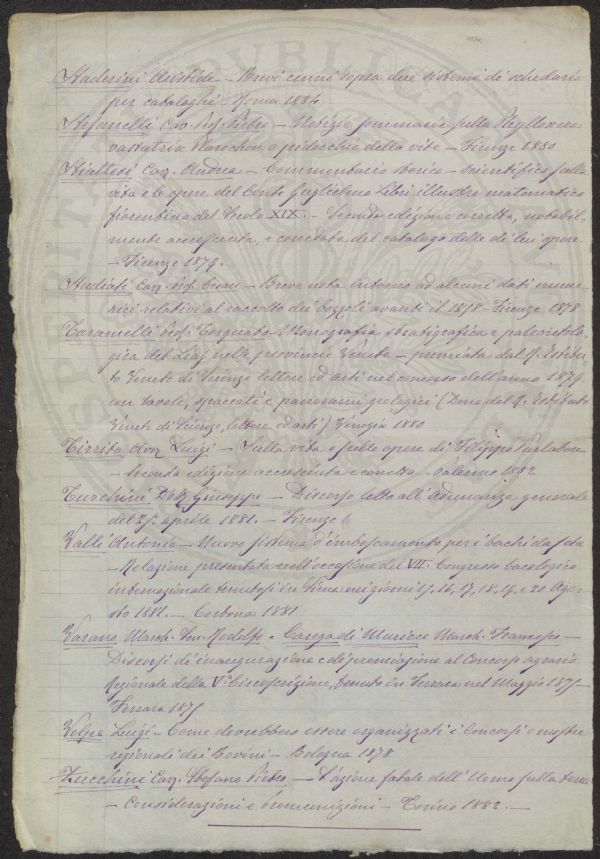 Staderini Aristide — Brevi cenni sopra due sistemi di schedario
per cataloghi — Roma 1884
Stefanelli Cav. Prof. Pietro — Notizie sommarie sulla Phylloxera
vastatrix Planchon o pidocchio della vite — Firenze 1880
Stiattesi Cav. Andrea — Commentario storico-scientifico sulla
vita e le opere del Conte Guglielmo Libri illustre matematico
fiorentino del Secolo XIX. — Seconda edizione corretta, notabil-
mente accresciuta, e corredata del catalogo delle di lui opere.
— Firenze 1879.
Studiati Cav. Prof. Cesare — Breve nota intorno ad alcuni dati nume-
rici relativi al raccolto dei bozzoli avanti il 1878 — Firenze 1878
Taramelli Prof. Torquato — Monografia stratigrafica e paleontolo-
gica del Lias nelle provincie Venete — premiata dal R. Istitu-
to Veneto di Scienze lettere ed arti nel concorso dell'anno 1879
con tavole, spaccati e panorami geologici (Dono del R. Istituto
Veneto di Scienze, lettere ed arti) Venezia 1880
Tirrito Avv. Luigi — Sulla vita e sulle opere di Filippo Parlatore
— Seconda edizione accresciuta e corretta — Palermo 1882
Turchini Dott. Giuseppe — Discorso letto all'Adunanza generale
del aprile 1881. — Firenze
Valli Antonio — Nuovo sistema d'imboscamento per i bachi da seta
— Relazione presentata nell'occasione del VII: Congresso bacologico
internazionale tenutosi in Siena nei giorni 15, 16, 17, 18, 19, e 20 Ago-
sto 1881. — Cortona 1881
Varano, March. Sen. Rodolfo e Carega di Muricce March. Francesco —
Discorsi di inaugurazione e di premiazione al Concorso agrario
Regionale della Vª Circoscrizione, tenuto in Ferrara nel Maggio 1875 —
Ferrara 1875
Volpe Luigi — Come dovrebbero essere organizzati i Concorsi o mostre
regionali dei Bovini — Bologna 1878
Zucchini Cav. Stefano Pietro — L'azione fatale dell'Uomo sulla terra
— Considerazioni e — Torino 1882. —